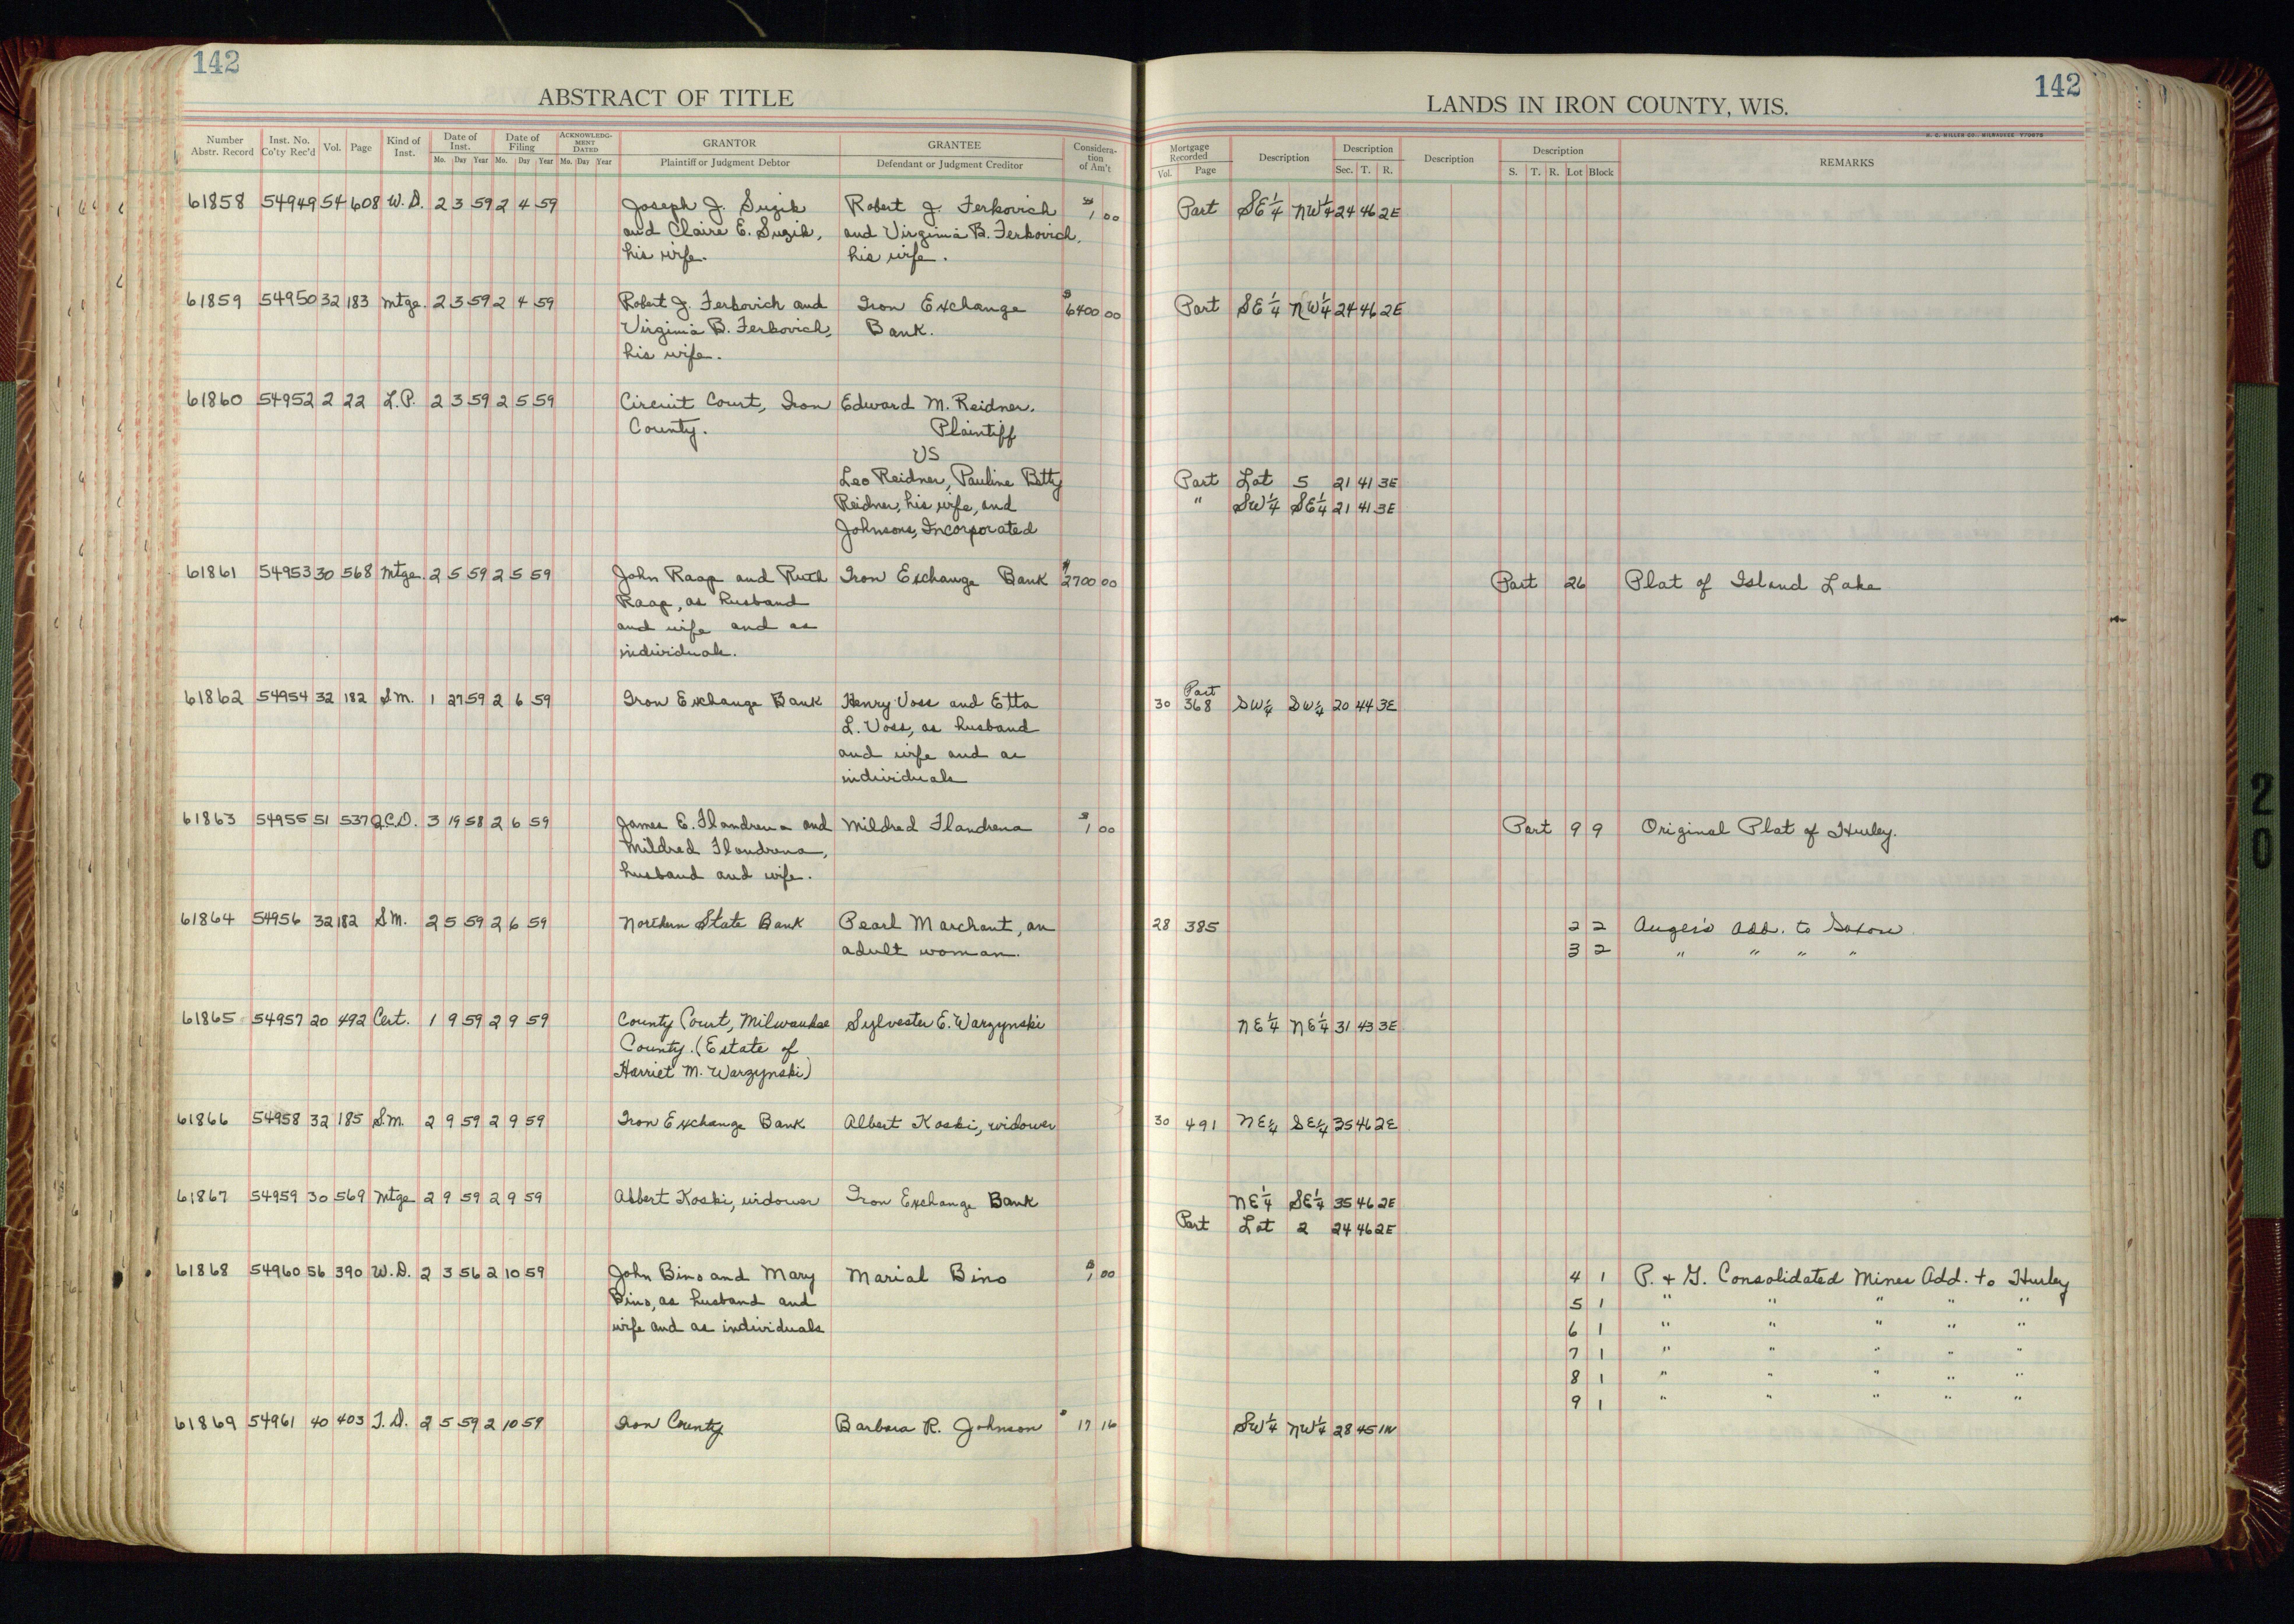 142
142
ABSTRACT OF TITLE
LANDS IN IRON COUNTY, WIS.
Number Abstr. Record | Inst. No. Co'ty Rec'd | Vol. | Page | Kind of Inst. | Date of Inst. Mo. Day Year | Date of Filing Mo. Day Year | ACKNOWLEDGMENT DATED Mo. Day Year | GRANTOR Plaintiff or Judgment Debtor | GRANTEE Defendant or Judgment Creditor | Consideration of Am't
Mortgage Recorded Vol. Page | Description | Description Sec. T. R. | Description | Description S. T. R. Lot Block | REMARKS
61858 54949 54 608 W.D. 2 3 59 2 4 59 Joseph J. Suzik Robert J. Ferkovich $1 00 Part SE¼ NW¼ 24 46 2E
and Claire E. Suzik, and Virginia B. Ferkovich,
his wife. his wife.
61859 54950 32 183 Mtge. 2 3 59 2 4 59 Robert J. Ferkovich and Iron Exchange $6400 00 Part SE¼ NW¼ 24 46 2E
Virginia B. Ferkovich, Bank.
his wife.
61860 54952 2 22 L.P. 2 3 59 2 5 59 Circuit Court, Iron Edward M. Reidner.
County. Plaintiff
VS
Leo Reidner, Pauline Betty Part Lot 5 21 41 3E
Reidner, his wife, and " SW¼ SE¼ 21 41 3E
Johnsons, Incorporated
61861 54953 30 568 Mtge. 2 5 59 2 5 59 John Raap and Ruth Iron Exchange Bank $2700 00 Part 26 Plat of Island Lake
Raap, as husband
and wife and as
individuals.
61862 54954 32 182 S.M. 1 27 59 2 6 59 Iron Exchange Bank Henry Voss and Etta 30 Part 368 SW¼ SW¼ 20 44 3E
L. Voss, as husband
and wife and as
individuals
61863 54955 51 537 Q.C.D. 3 19 58 2 6 59 James E. Flandrena and Mildred Flandrena $1 00 Part 9 9 Original Plat of Hurley.
Mildred Flandrena,
husband and wife.
61864 54956 32 182 S.M. 2 5 59 2 6 59 Northern State Bank Pearl Marchant, an 28 385 2 2 Auger's Add. to Saxon
adult woman. 3 2 " " " "
61865 54957 20 492 Cert. 1 9 59 2 9 59 County Court, Milwaukee Sylvester E. Warzynski NE¼ NE¼ 31 43 3E
County. (Estate of
Harriet M. Warzynski)
61866 54958 32 185 S.M. 2 9 59 2 9 59 Iron Exchange Bank Albert Koski, widower 30 491 NE¼ SE¼ 35 46 2E
61867 54959 30 569 Mtge 2 9 59 2 9 59 Albert Koski, widower Iron Exchange Bank NE¼ SE¼ 35 46 2E
Part Lot 2 24 46 2E
61868 54960 56 390 W.D. 2 3 56 2 10 59 John Bino and Mary Marial Bino $1 00 4 1 P. & G. Consolidated Mines Add. to Hurley
Bino, as husband and 5 1 " " " " "
wife and as individuals 6 1 " " " " "
7 1 " " " " "
8 1 " " " " "
9 1 " " " " "
61869 54961 40 403 T.D. 2 5 59 2 10 59 Iron County Barbara R. Johnson $17 16 SW¼ NW¼ 28 45 1W
20